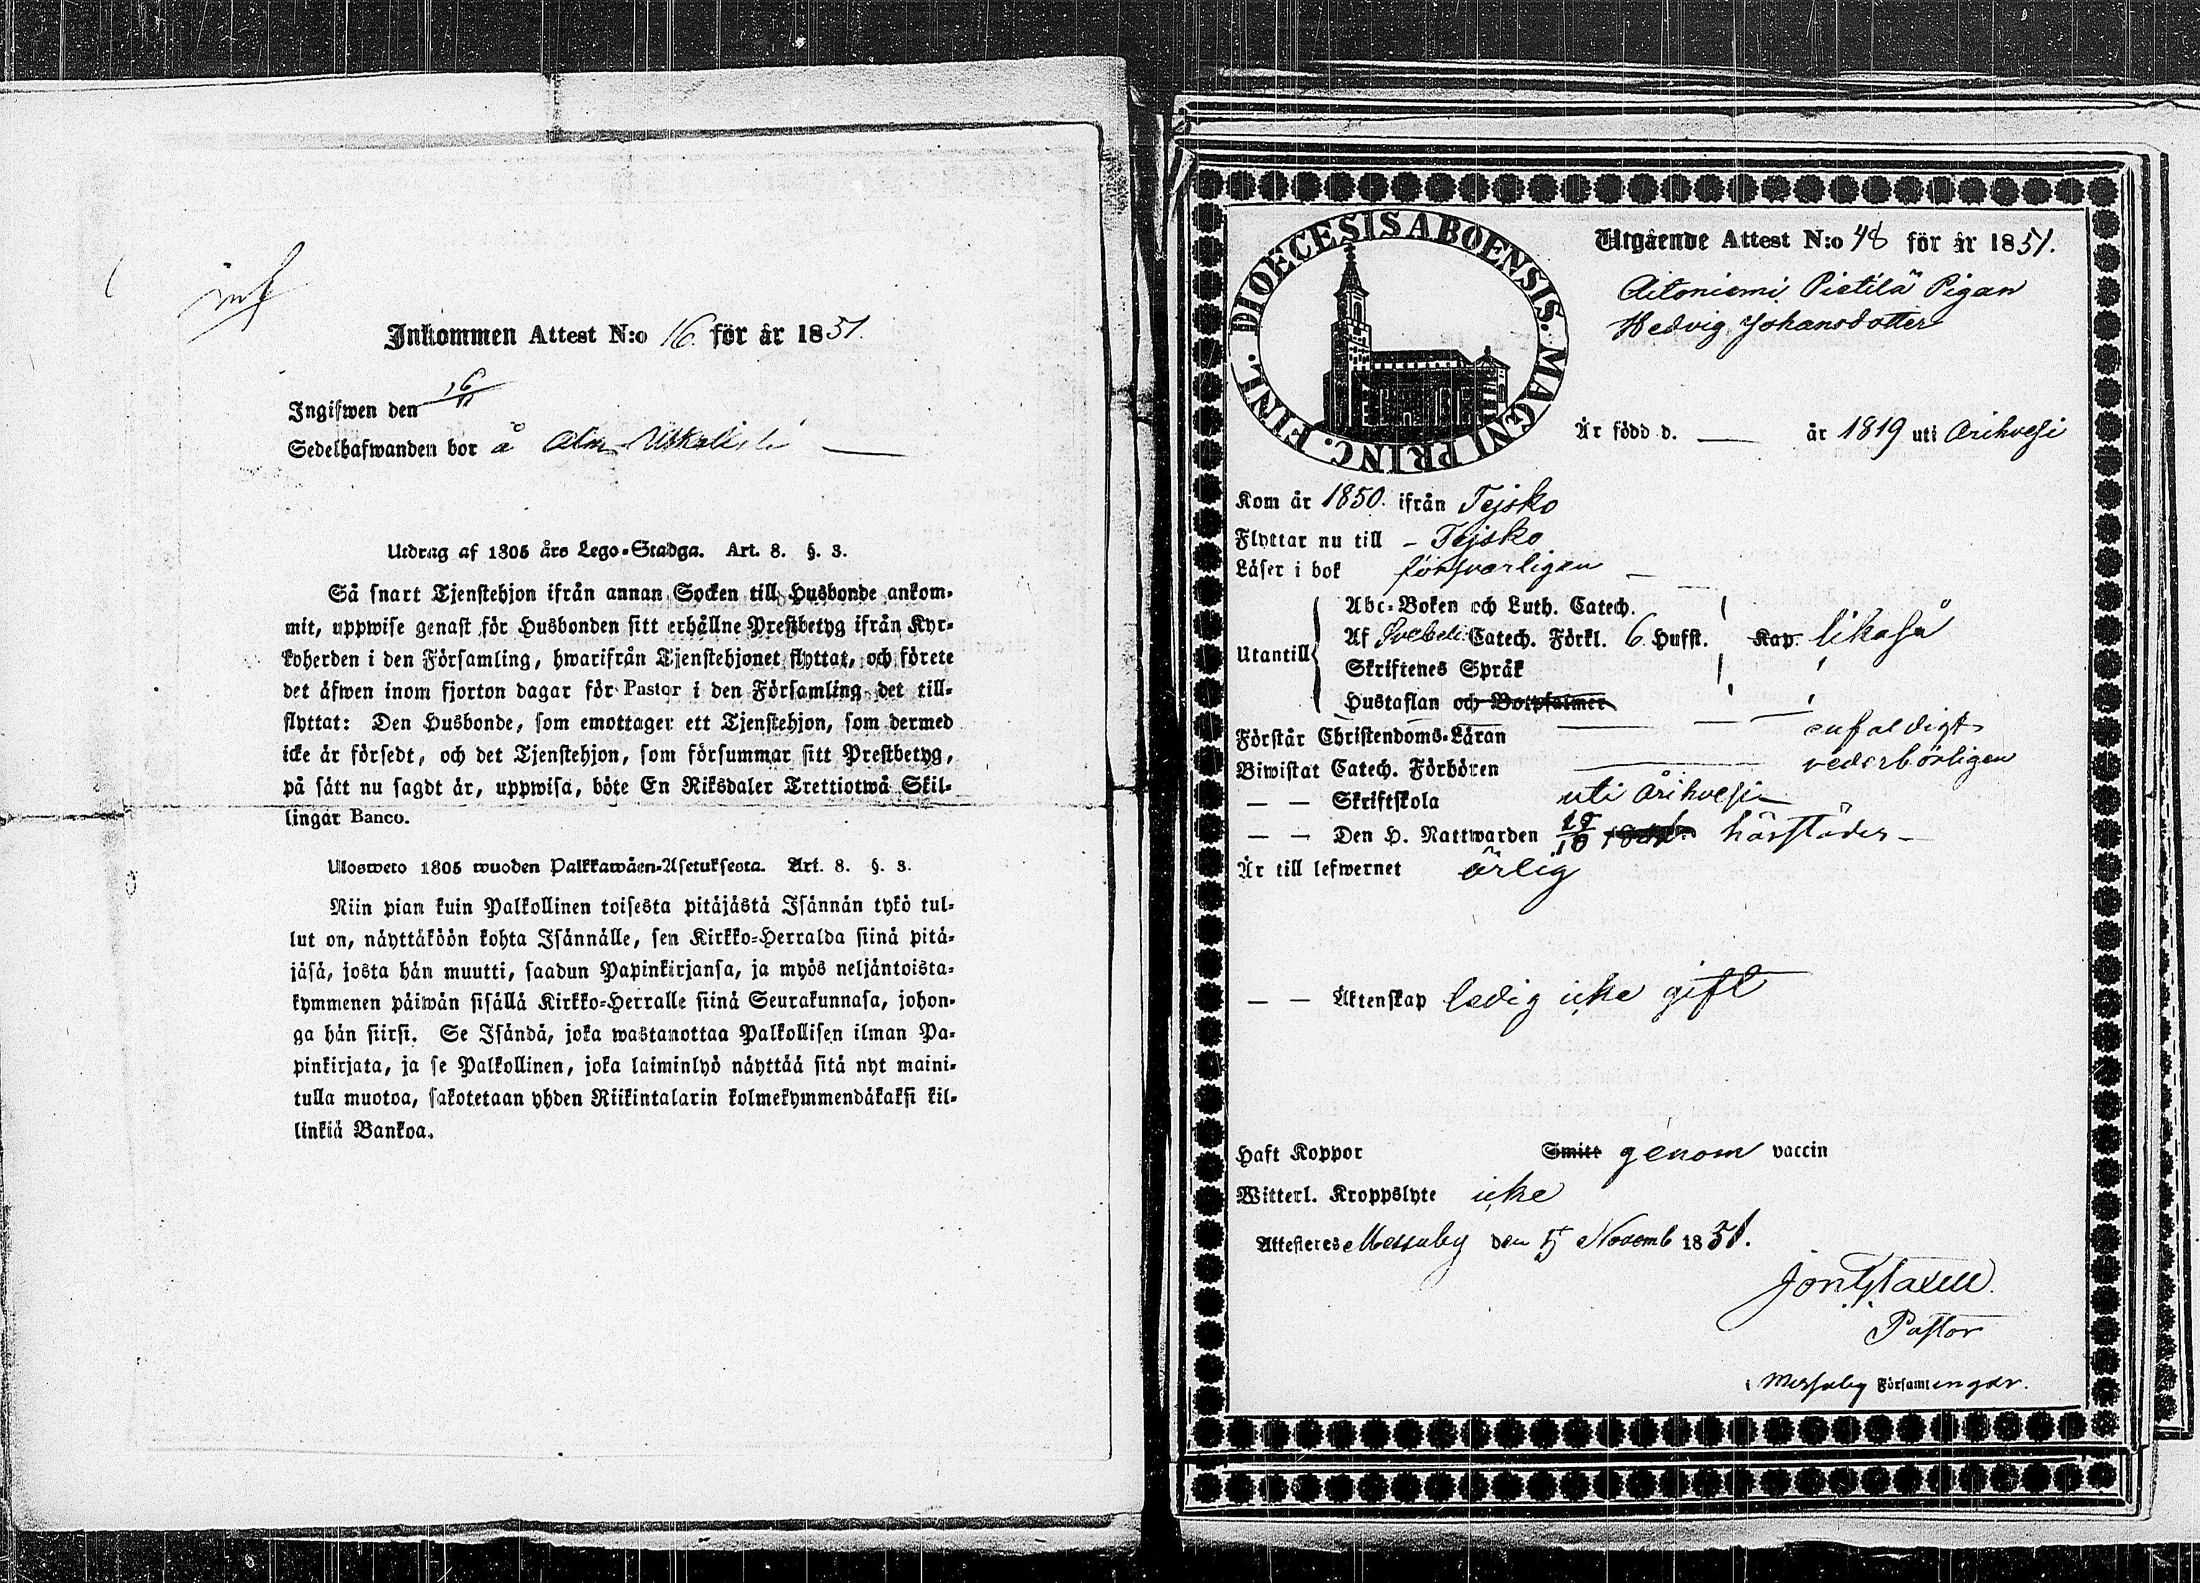 Inkommen Attest N:o 16. för år 1851.
Ingifwen den 16/11
Sedelhafwanden bor å
Utdrag af 1805 års Lego-Stadga. Art. 8. §. 3.
Så snart Tjenstehjon ifrån annan Socken till Husbonde ankom-
mit, uppwise genast för Husbonden sitt erhållne Prestbetyg ifrån Kyr-
koherden i den Församling, hwarifrån Tjenstehjonet flyttat, och förete
det äfwen inom fjorton dagar för Pastor i den Församling det till-
flyttat: Den Husbonde, som emottager ett Tjenstehjon, som dermed
icke är försedt, och det Tjenstehjon, som försummar sitt Prestbetyg,
på sätt nu sagdt är, uppwisa, böte En Riksdaler Trettiotwå Skil-
lingar Banco.
Ulosweto 1805 wuoden Palkkawäen-Asetuksesta. Art. 8. §. 3.
Niin pian kuin Palkollinen toisesta pitäjästä Isännän tykö tul-
lut on, näyttäköön kohta Isännälle, sen Kirkko-Herralda siinä pitä-
jäsä, josta hän muutti, saadun Papinkirjansa, ja myös neljäntoista-
kymmenen päiwän sisällä Kirkko-Herralle siinä Seurakunnasa, johon-
ga hän siirsi. Se Isändä, joka wastanottaa Palkollisen ilman Pa-
pinkirjata, ja se Palkollinen, joka laiminlyö näyttää sitä nyt maini-
tulla muotoa, sakotetaan yhden Riikintalarin kolmekymmendäkaksi kil-
linkiä Bankoa.
DIOECESIS ABOENSIS. MAGNI PRINC. FINL.
Utgående Attest N:o 48 för år 1851.
Aitoniemi Pietilä Pigan
Hedvig Johansdotter
Är född d. — år 1819 uti Orihvesi
Kom år 1850. ifrån Tejsko
Flyttar nu till – Tejsko
Läser i bok försvarligen
Utantill
Abc-Boken och Luth. Catech.
Af Svebeli Catech. Förkl. 6 Hufst. Kap. likaså
Skriftenes Språk
Hustaflan och Botpsalmer
Förstår Christendoms-Läran enfaldigt
Biwistat Catech. Förhören vederbörligen
— — Skriftskola uti Orihvesi
— — Den H. Nattwarden härstädes
Är till lefwernet ärlig
— — Äktenskap ledig icke gift
Haft Koppor Smitt genom vaccin
Witterl. Kroppslyte icke
Attesteres Messuby den 5 Novemb 1851.
Pastor
i Messuby Församlingar.